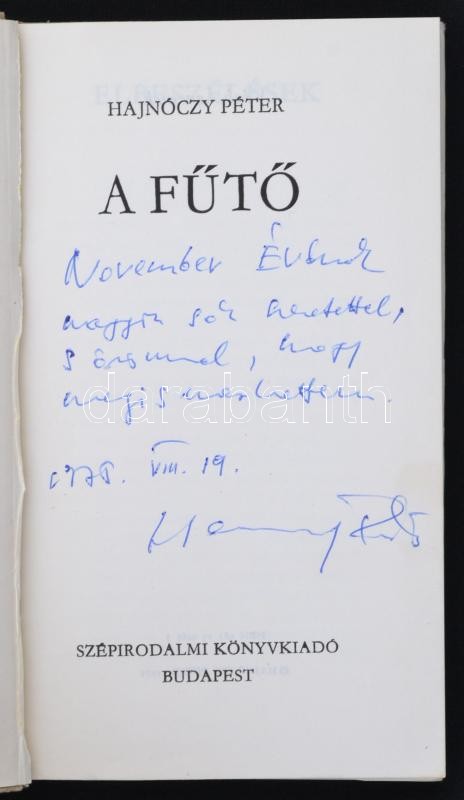 HAJNÓCZY PÉTER
A FŰTŐ
November Évának
nagyon sok szeretettel,
s örömmel, hogy
megismerhettem.
darabanth
1975. VIII. 19.
SZÉPIRODALMI KÖNYVKIADÓ
BUDAPEST